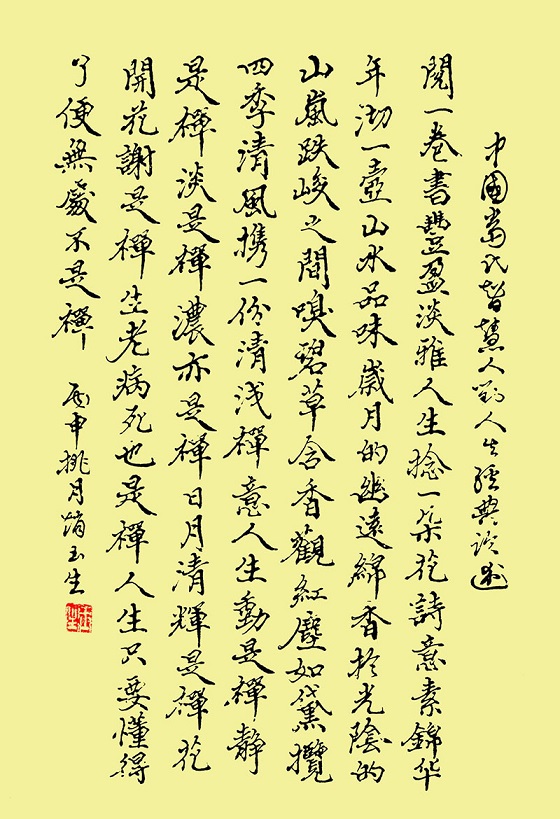 中國當代智慧人對人生經典論述
閱一卷書豐盈淡雅人生捻一朵花詩意素錦华
年沏一壺山水品味歲月的幽遠綿香於光陰的
山嵐跌峻之間嗅碧草含香觀紅塵如黛攬
四季清風携一份清浅禪意人生動是禪靜
是禪淡是禪濃亦是禪日月清輝是禪花
開花謝是禪生老病死也是禪人生只要懂得
了便無處不是禪 丙申桃月玉生